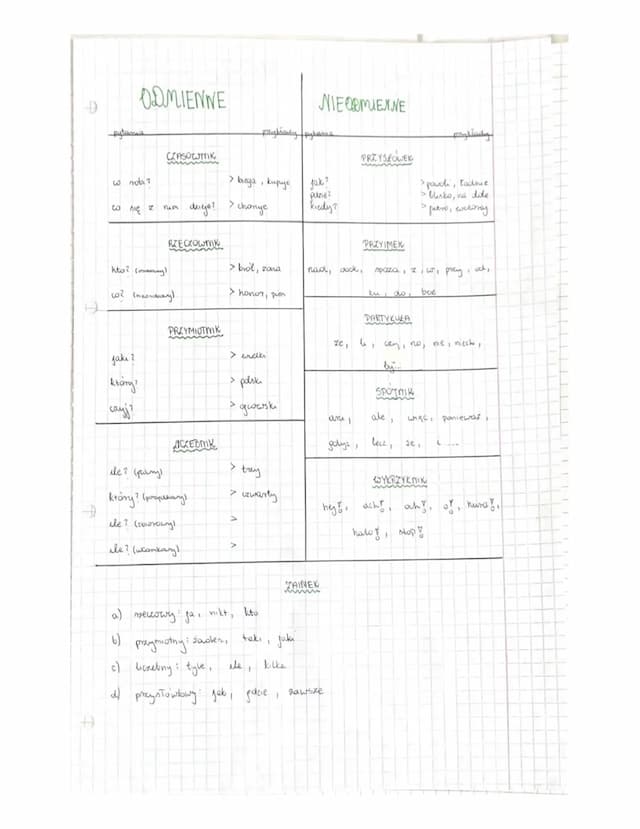 ODMIENNE
NIEODMIENNE
pytania przykłady pytania przykłady
CZASOWNIK
co robi? > biega, kupuje
co się z nim dzieje? > choruje
RZECZOWNIK
kto? > król, żona
co? > honor, pies
PRZYMIOTNIK
jaki? > wielki
który? > polski
czyj?
LICZEBNIK
ile? > trzy
który? (porządkowy) > czwarty
ile? (zbiorowy) >
ile? (ułamkowy) >
PRZYSŁÓWEK
jak? > powoli, ładnie
gdzie? > blisko, na dole
kiedy?
PRZYIMEK
nad, pod, poza, z, w, przy, od,
ku, do, bez
PARTYKUŁA
że, li, czy, no, nie, niech,
by...
SPÓJNIK
ale, więc, ponieważ,
gdyż, lecz, że, i ....
WYKRZYKNIK
hej!, ach!, och!, o!, hura!,
halo!, stop!
ZAIMEK
a) rzeczowy: ja, nikt, kto
b) przymiotny: żaden, taki, jaki
c) liczebny: tyle, ile, kilka
d) przysłówkowy: jak, gdzie, zawsze